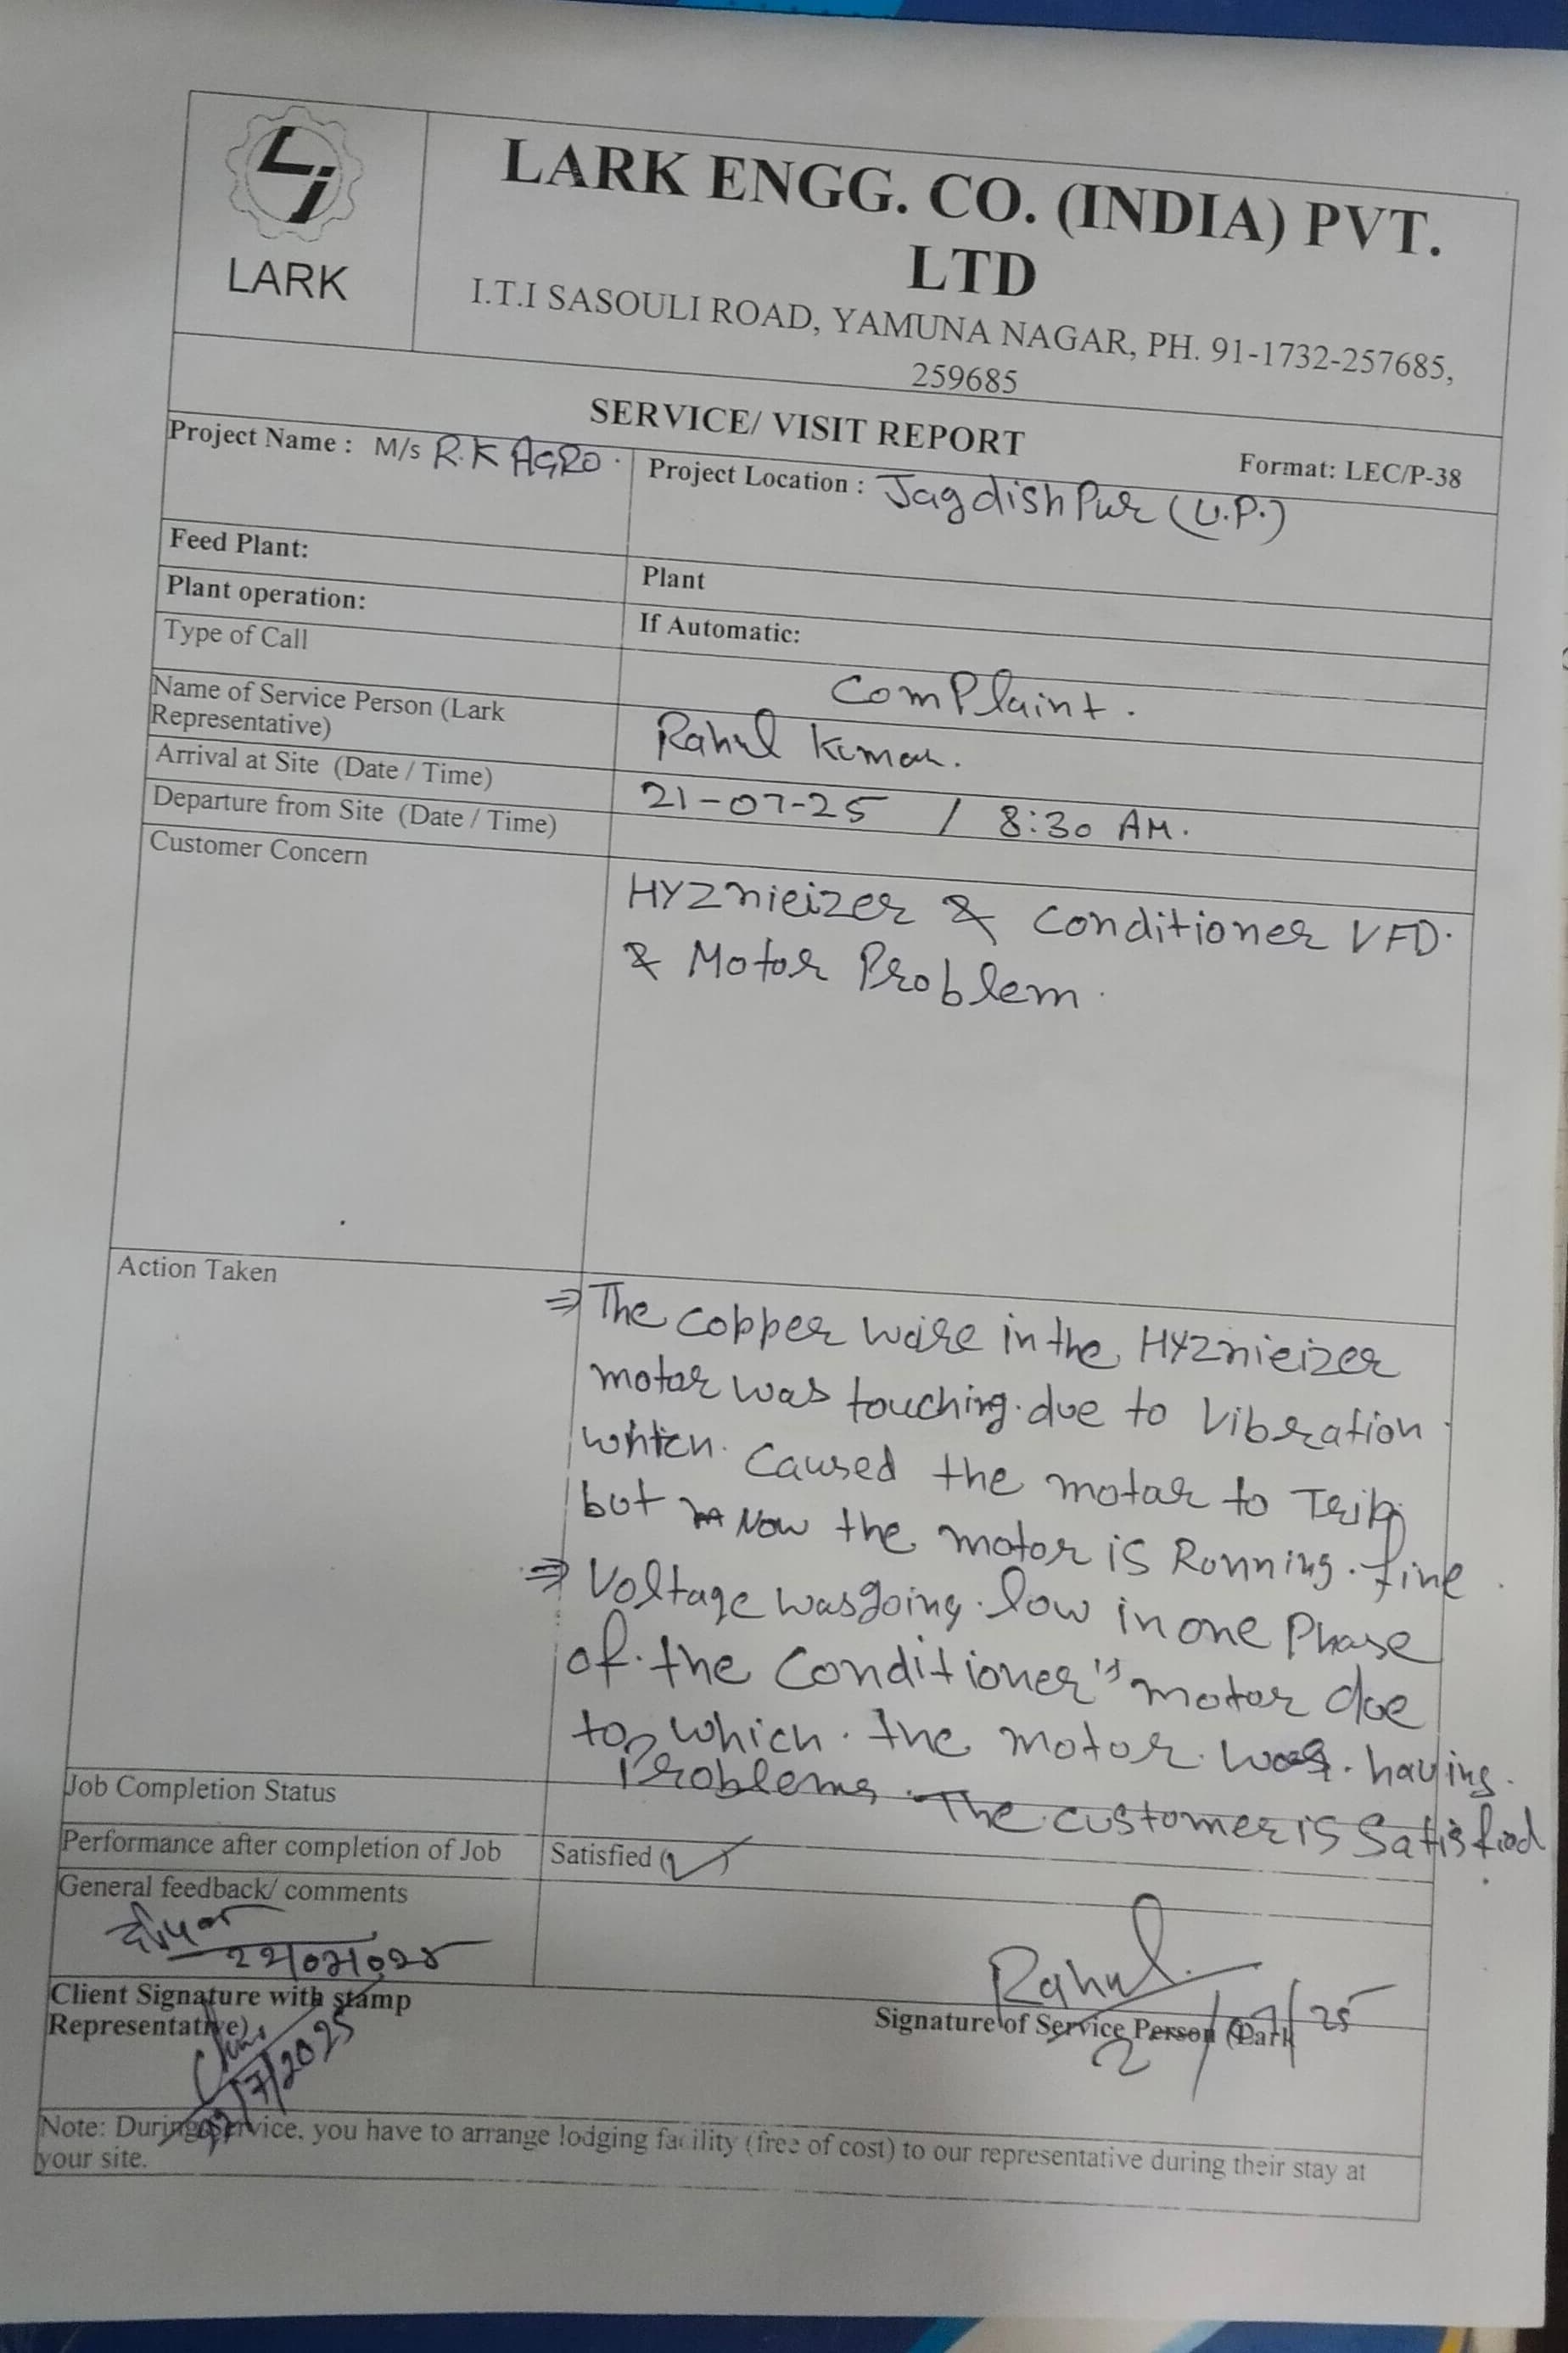 LARK
LARK ENGG. CO. (INDIA) PVT.
LTD
I.T.I SASOULI ROAD, YAMUNA NAGAR, PH. 91-1732-257685,
259685
SERVICE/ VISIT REPORT
Format: LEC/P-38
Project Name : M/s R.K AGRO.
Project Location : JagdishPur (U.P.)
Feed Plant:
Plant
Plant operation:
If Automatic:
Type of Call
ComPlaint.
Name of Service Person (Lark
Representative)
Rahul Kumar.
Arrival at Site (Date / Time)
21-07-25 / 8:30 AM.
Departure from Site (Date / Time)
Customer Concern
HYZnieizer & Conditioner VFD.
& Motor Problem.
Action Taken
⇒ The Copper waire in the HYZnieizer
motar was touching due to Vibration
which Caused the motar to Trip
but Now the motor is Running. fine.
⇒ Voltage was going low in one Phase
of the Conditioner" motor due
to which the motor was having.
Problems. The customer is Satisfied.
Job Completion Status
Performance after completion of Job
Satisfied (✓)
General feedback/ comments
Rahul
/07/25
Client Signature with stamp
Representative)
Signature of Service Person (Lark
/7/2025
Note: During Service, you have to arrange lodging facility (free of cost) to our representative during their stay at
your site.